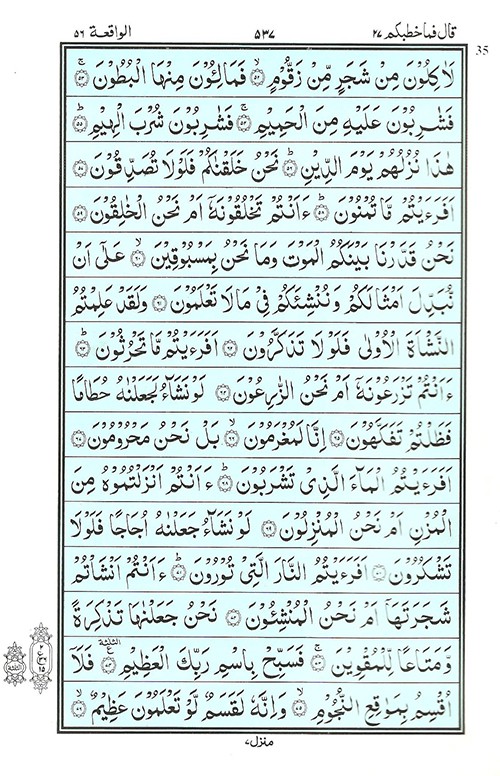 قال فماخطبكم ٢٧ ٥٣٧ الواقعة ٥٦
35
لَاٰكِلُوْنَ مِنْ شَجَرٍ مِّنْ زَقُّوْمٍ ۙ‏﴿۵۲﴾ فَمَالِـُٔوْنَ مِنْهَا الْبُطُوْنَ ۚ‏﴿۵۳﴾
فَشٰرِبُوْنَ عَلَيْهِ مِنَ الْحَمِيْمِ ۚ‏﴿۵۴﴾ فَشٰرِبُوْنَ شُرْبَ الْهِيْمِ ؕ‏﴿۵۵﴾
هٰذَا نُزُلُهُمْ يَوْمَ الدِّيْنِ ؕ‏﴿۵۶﴾ نَحْنُ خَلَقْنٰكُمْ فَلَوْلَا تُصَدِّقُوْنَ‏﴿۵۷﴾
اَفَرَءَيْتُمْ مَّا تُمْنُوْنَ ؕ‏﴿۵۸﴾ ءَاَنْتُمْ تَخْلُقُوْنَهٗۤ اَمْ نَحْنُ الْخٰلِقُوْنَ‏﴿۵۹﴾
نَحْنُ قَدَّرْنَا بَيْنَكُمُ الْمَوْتَ وَمَا نَحْنُ بِمَسْبُوْقِيْنَ ۙ‏﴿۶۰﴾ عَلٰٓى اَنْ
نُّبَدِّلَ اَمْثَالَكُمْ وَنُنْشِئَكُمْ فِىْ مَا لَا تَعْلَمُوْنَ‏﴿۶۱﴾ وَلَقَدْ عَلِمْتُمُ
النَّشْاَةَ الْاُوْلٰى فَلَوْلَا تَذَكَّرُوْنَ‏﴿۶۲﴾ اَفَرَءَيْتُمْ مَّا تَحْرُثُوْنَ ؕ‏﴿۶۳﴾
ءَاَنْتُمْ تَزْرَعُوْنَهٗۤ اَمْ نَحْنُ الزّٰرِعُوْنَ‏﴿۶۴﴾ لَوْ نَشَآءُ لَجَعَلْنٰهُ حُطَامًا
فَظَلْتُمْ تَفَكَّهُوْنَ‏﴿۶۵﴾ اِنَّا لَمُغْرَمُوْنَ ۙ‏﴿۶۶﴾ بَلْ نَحْنُ مَحْرُوْمُوْنَ‏﴿۶۷﴾
اَفَرَءَيْتُمُ الْمَآءَ الَّذِىْ تَشْرَبُوْنَ ؕ‏﴿۶۸﴾ ءَاَنْتُمْ اَنْزَلْتُمُوْهُ مِنَ
الْمُزْنِ اَمْ نَحْنُ الْمُنْزِلُوْنَ‏﴿۶۹﴾ لَوْ نَشَآءُ جَعَلْنٰهُ اُجَاجًا فَلَوْلَا
تَشْكُرُوْنَ‏﴿۷۰﴾ اَفَرَءَيْتُمُ النَّارَ الَّتِىْ تُوْرُوْنَ ؕ‏﴿۷۱﴾ ءَاَنْتُمْ اَنْشَاْتُمْ
شَجَرَتَهَاۤ اَمْ نَحْنُ الْمُنْشِـُٔوْنَ‏﴿۷۲﴾ نَحْنُ جَعَلْنٰهَا تَذْكِرَةً
وَّمَتَاعًا لِّلْمُقْوِيْنَ ۚ‏﴿۷۳﴾ فَسَبِّحْ بِاسْمِ رَبِّكَ الْعَظِيْمِ‏﴿۷۴﴾ الثلثة ع فَلَاۤ
اُقْسِمُ بِمَوٰقِعِ النُّجُوْمِ ۙ‏﴿۷۵﴾ وَاِنَّهٗ لَقَسَمٌ لَّوْ تَعْلَمُوْنَ عَظِيْمٌ ۙ‏﴿۷۶﴾
منزل ٧